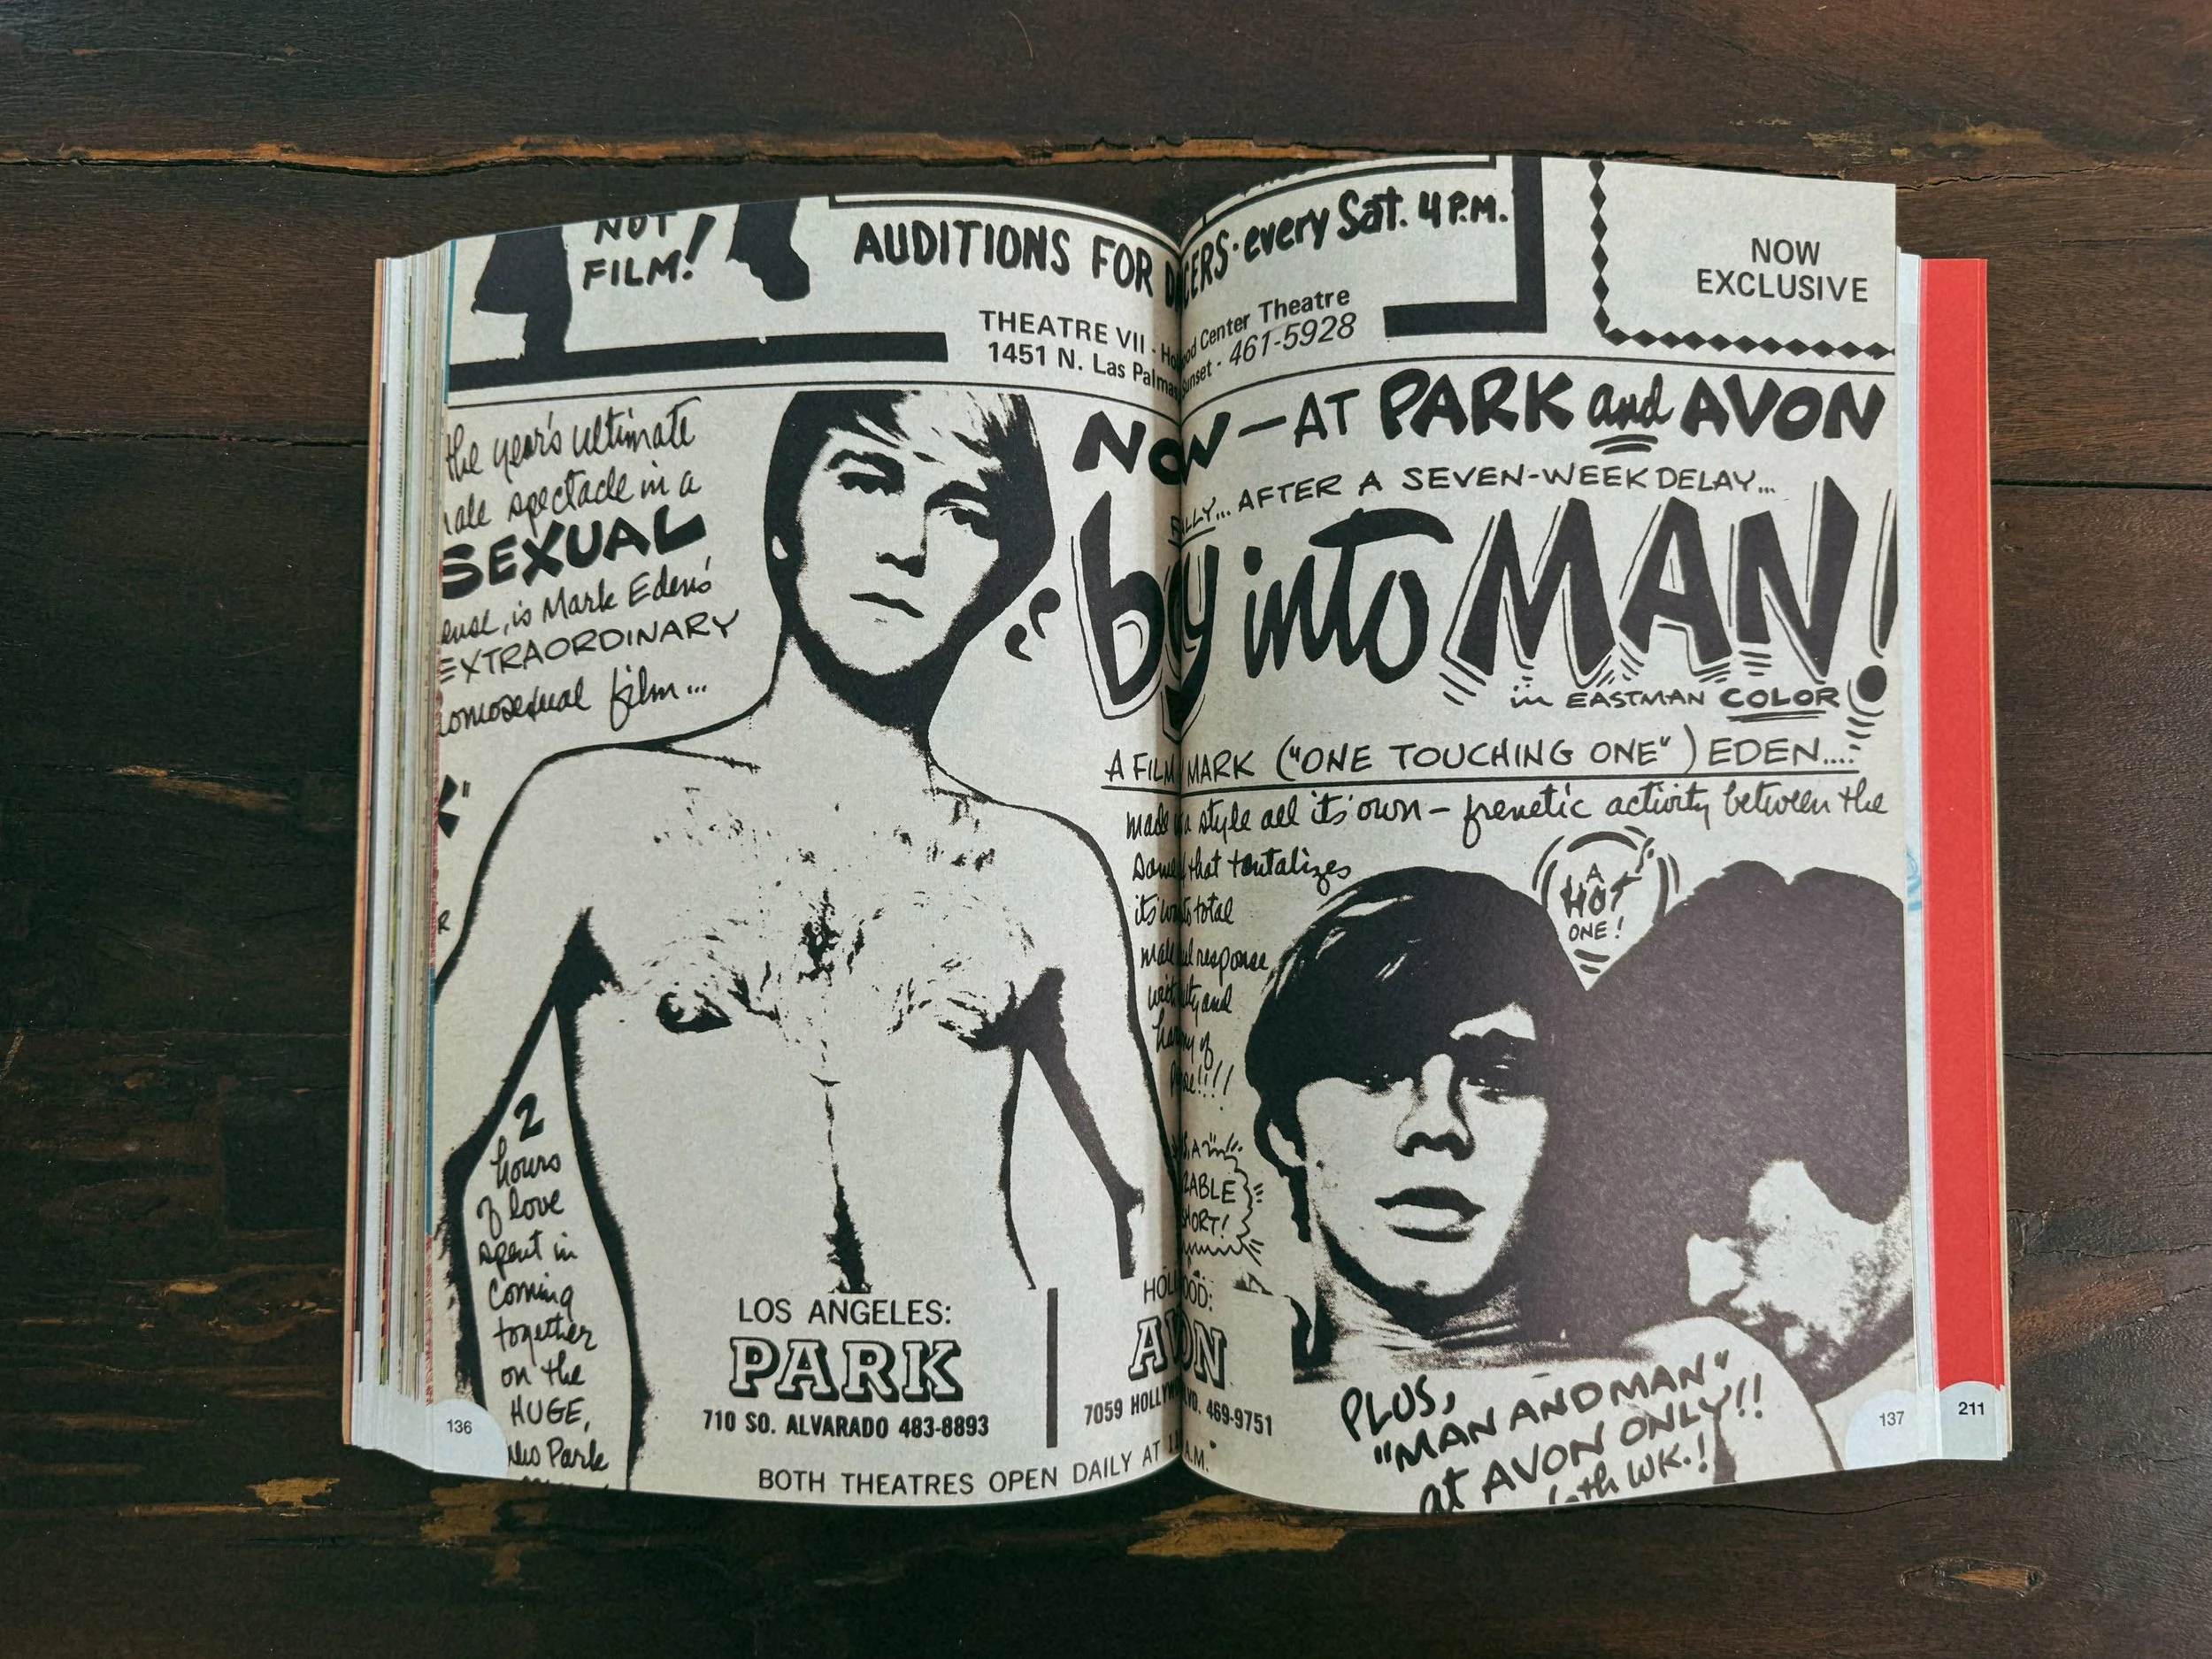 NOT
FILM!
AUDITIONS FOR D CERS · every Sat. 4 P.M.
THEATRE VII - Ho ood Center Theatre
1451 N. Las Palmas Sunset - 461-5928
NOW
EXCLUSIVE
the year's ultimate
ale spectacle in a
SEXUAL
ense, is Mark Eden's
EXTRAORDINARY
omosexual film...
K"
R
NOW - AT PARK and AVON
ALLY... AFTER A SEVEN-WEEK DELAY...
boy into MAN!
in EASTMAN COLOR
A FILM MARK ("ONE TOUCHING ONE") EDEN....
made a style all its' own - frenetic activity between the
that tantalizes
its total
male response,
with and
of
!!!!
A
HOT
ONE!
RABLE
SHORT!
2
hours
of love
spent in
coming
together
on the
HUGE,
Park
LOS ANGELES:
PARK
710 SO. ALVARADO 483-8893
HOL OOD:
AVON
7059 HOLLYW LVD. 469-9751
BOTH THEATRES OPEN DAILY AT A.M.
PLUS,
"MAN AND MAN"
at AVON ONLY!!
th WK.!
136
137
211